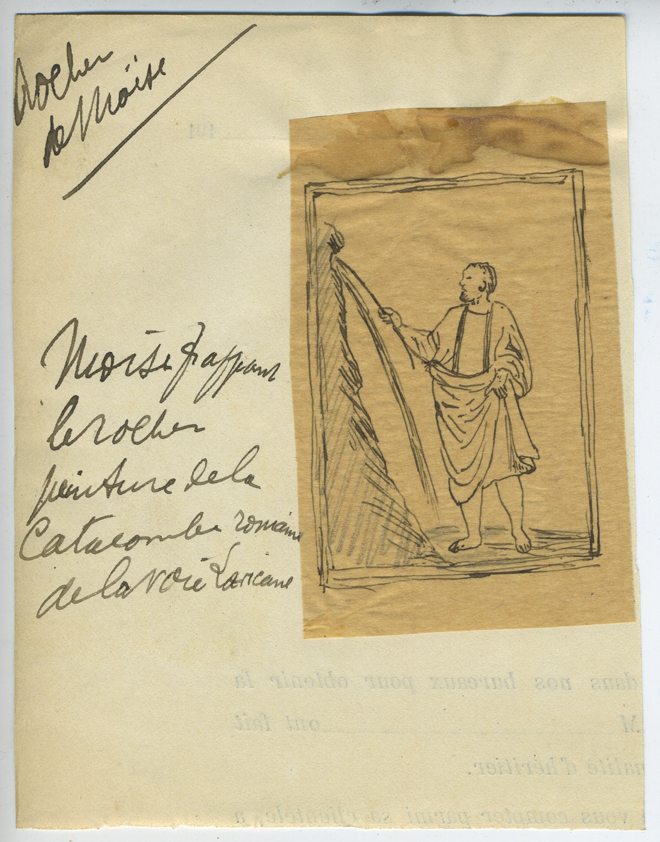 Rocher
de Moïse
Moïse frappant
le rocher
peinture de la
Catacombe romaine
de la voie
101
dans nos bureaux pour obtenir la
M ont fait
alité d'héritier.
vous compter parmi sa clientèle, a